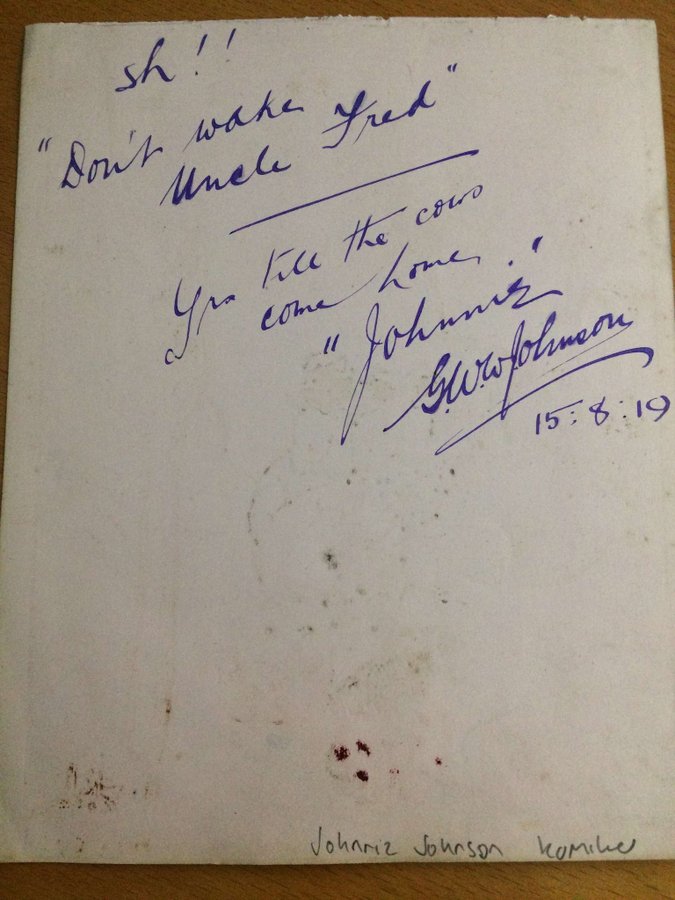 sh!!
"Don't wake
Uncle Fred"
Yrs till the cows
come home.
"Johnnie"
G.W.W Johnson
15:8:19
Johnnie Johnson Komiker